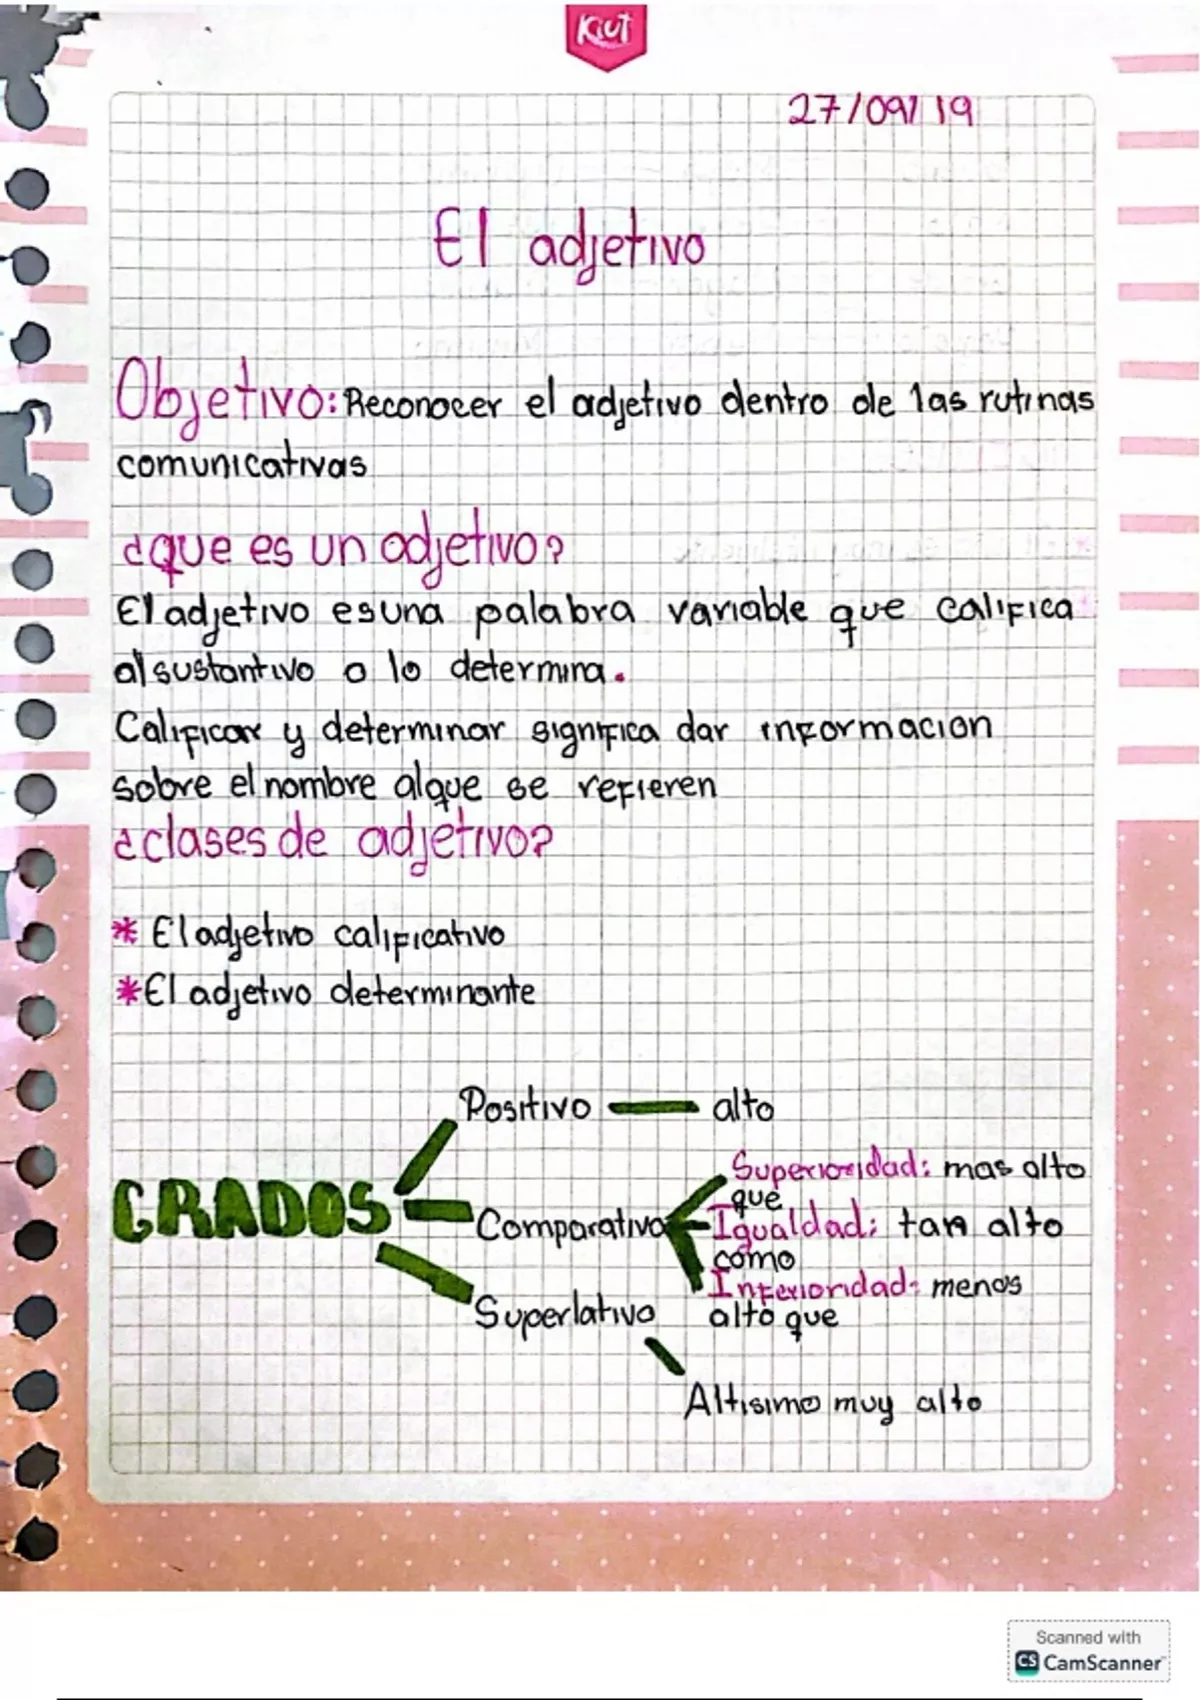 Kiut
27/09/19
El adjetivo
Objetivo: Reconocer el adjetivo dentro de las rutinas
comunicativas
¿que es un adjetivo?
El adjetivo es una palabra variable que califica
al sustantivo o lo determina.
Calificar y determinar significa dar informacion
sobre el nombre al que se refieren
¿clases de adjetivo?
* El adjetivo calificativo
* El adjetivo determinante
Positivo — alto
Superioridad: mas alto
que
GRADOS
Comparativo
Igualdad: tan alto
como
Inferioridad: menos
alto que
Superlativo
Altisimo muy alto
Scanned with
CS CamScanner